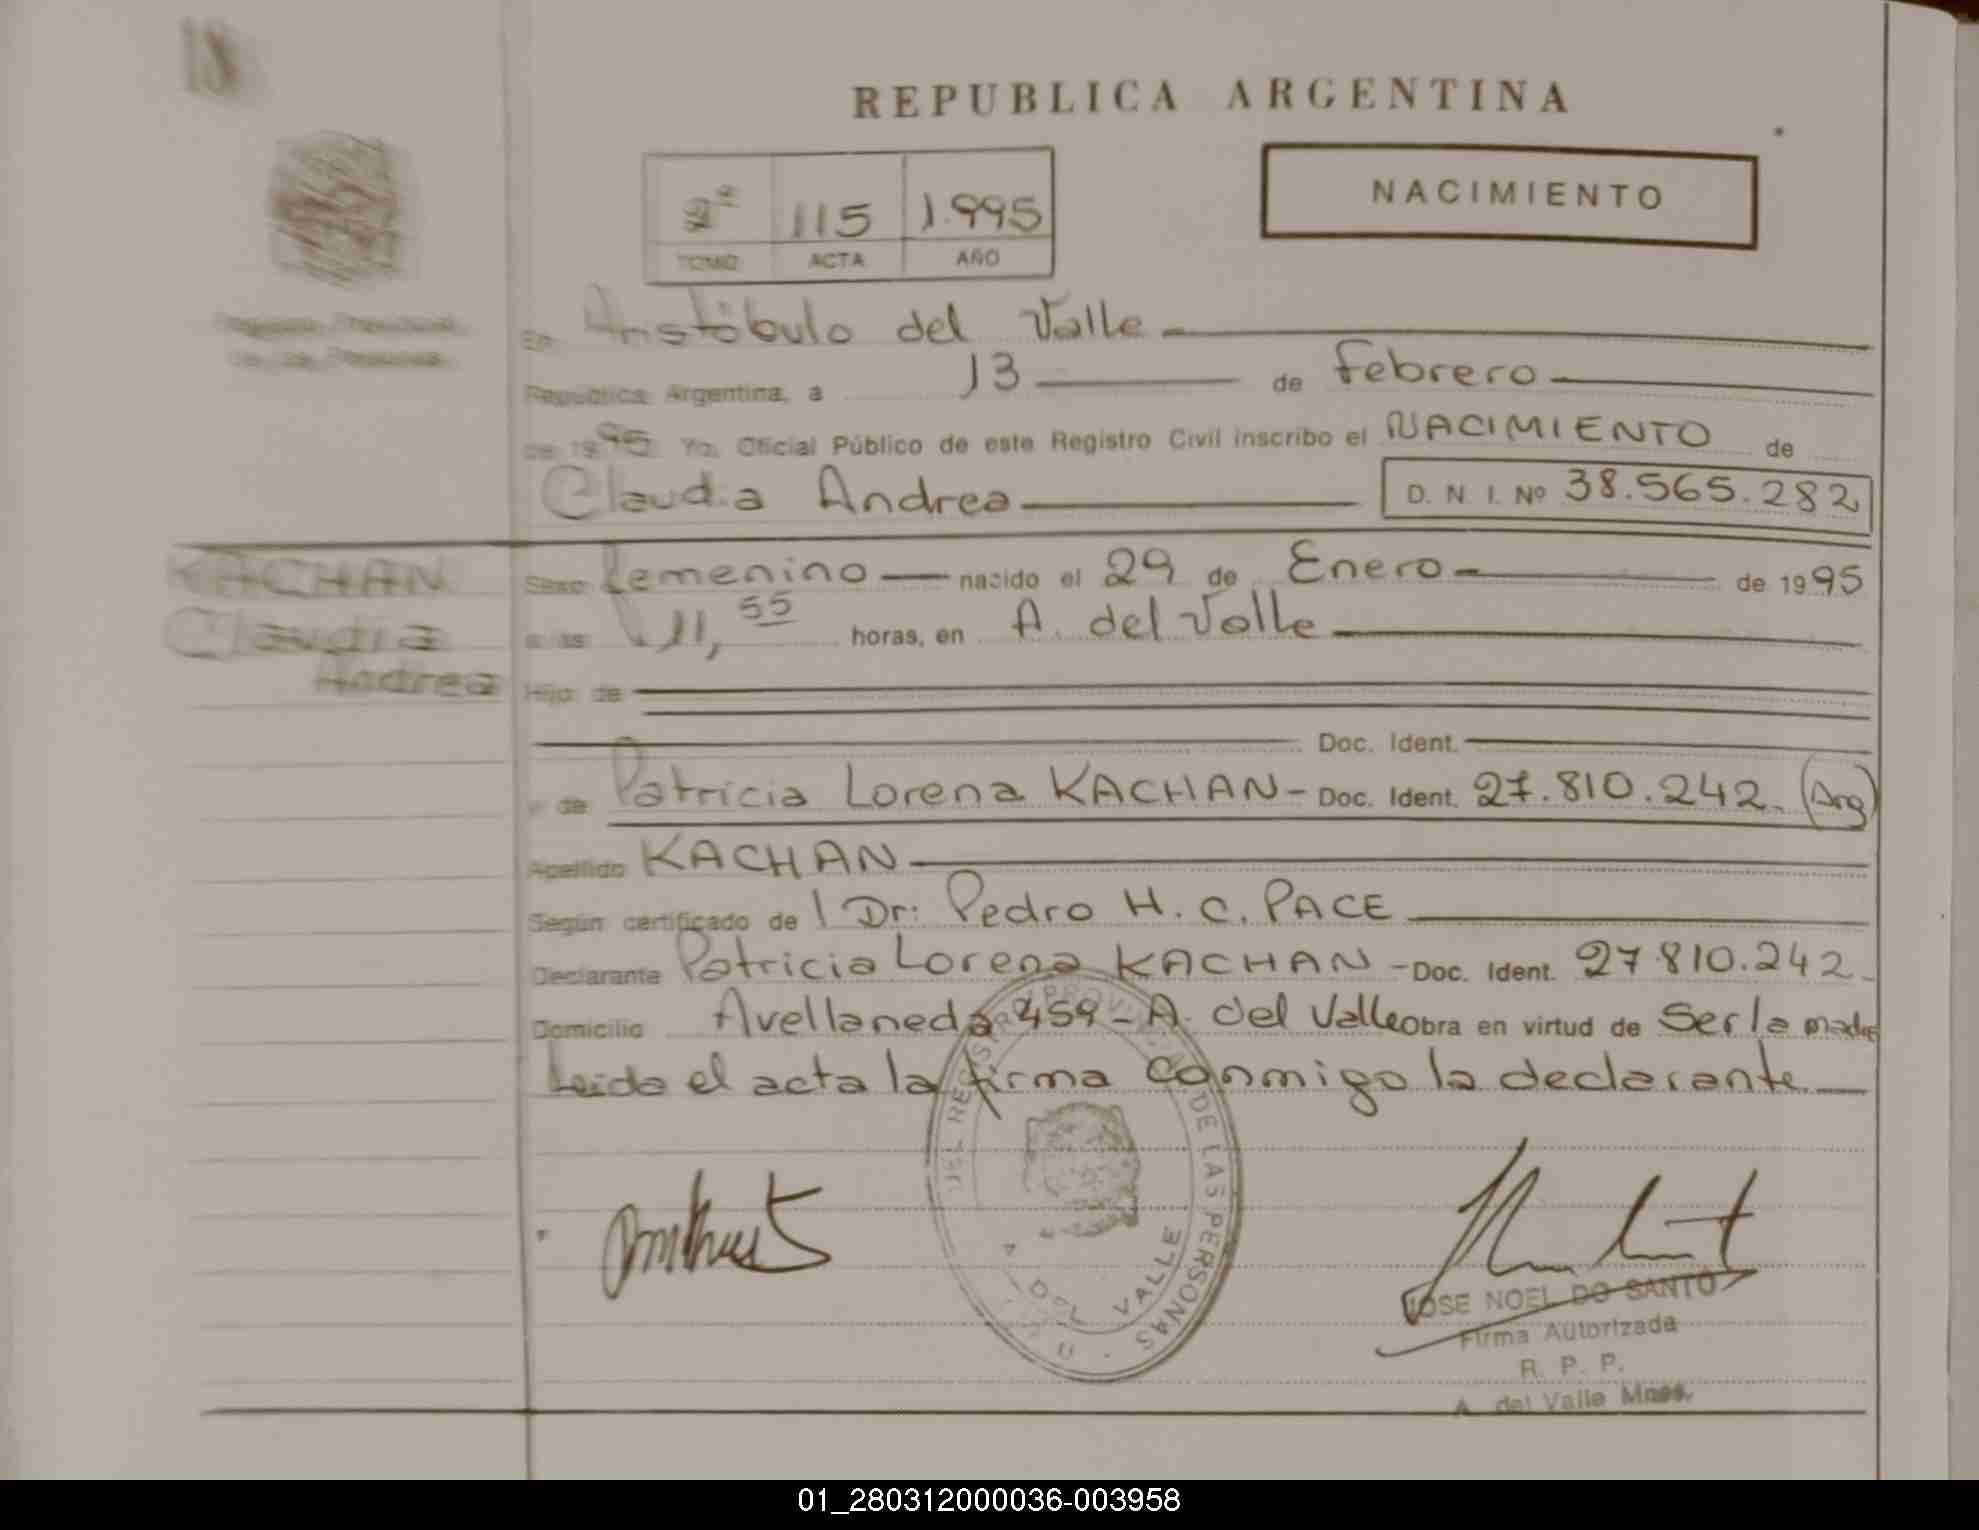 18
REPUBLICA ARGENTINA
2º 115 1.995
TOMO ACTA AÑO
NACIMIENTO
En Aristóbulo del Valle
República Argentina, a 13 de Febrero
de 1995 Yo, Oficial Público de este Registro Civil inscribo el NACIMIENTO de
Claudia Andrea D. N. I. Nº 38.565.282
KACHAN
Claudia
Andrea
Sexo femenino nacido el 29 de Enero de 1995
a las 11,55 horas, en A. del Valle
Hijo de
Doc. Ident.
y de Patricia Lorena KACHAN - Doc. Ident. 27.810.242. (Arg)
Apellido KACHAN
Según certificado de Dr: Pedro H. C. PACE
Declarante Patricia Lorena KACHAN - Doc. Ident. 27.810.242
Domicilio Avellaneda 459 - A. del Valle obra en virtud de Ser la madre
Leida el acta la firma conmigo la declarante
DEL REGISTRO PROVINCIAL DE LAS PERSONAS
A. DEL VALLE
JOSE NOEL DO SANTO
Firma Autorizada
R. P. P.
A. del Valle Mnes.
01_280312000036-003958